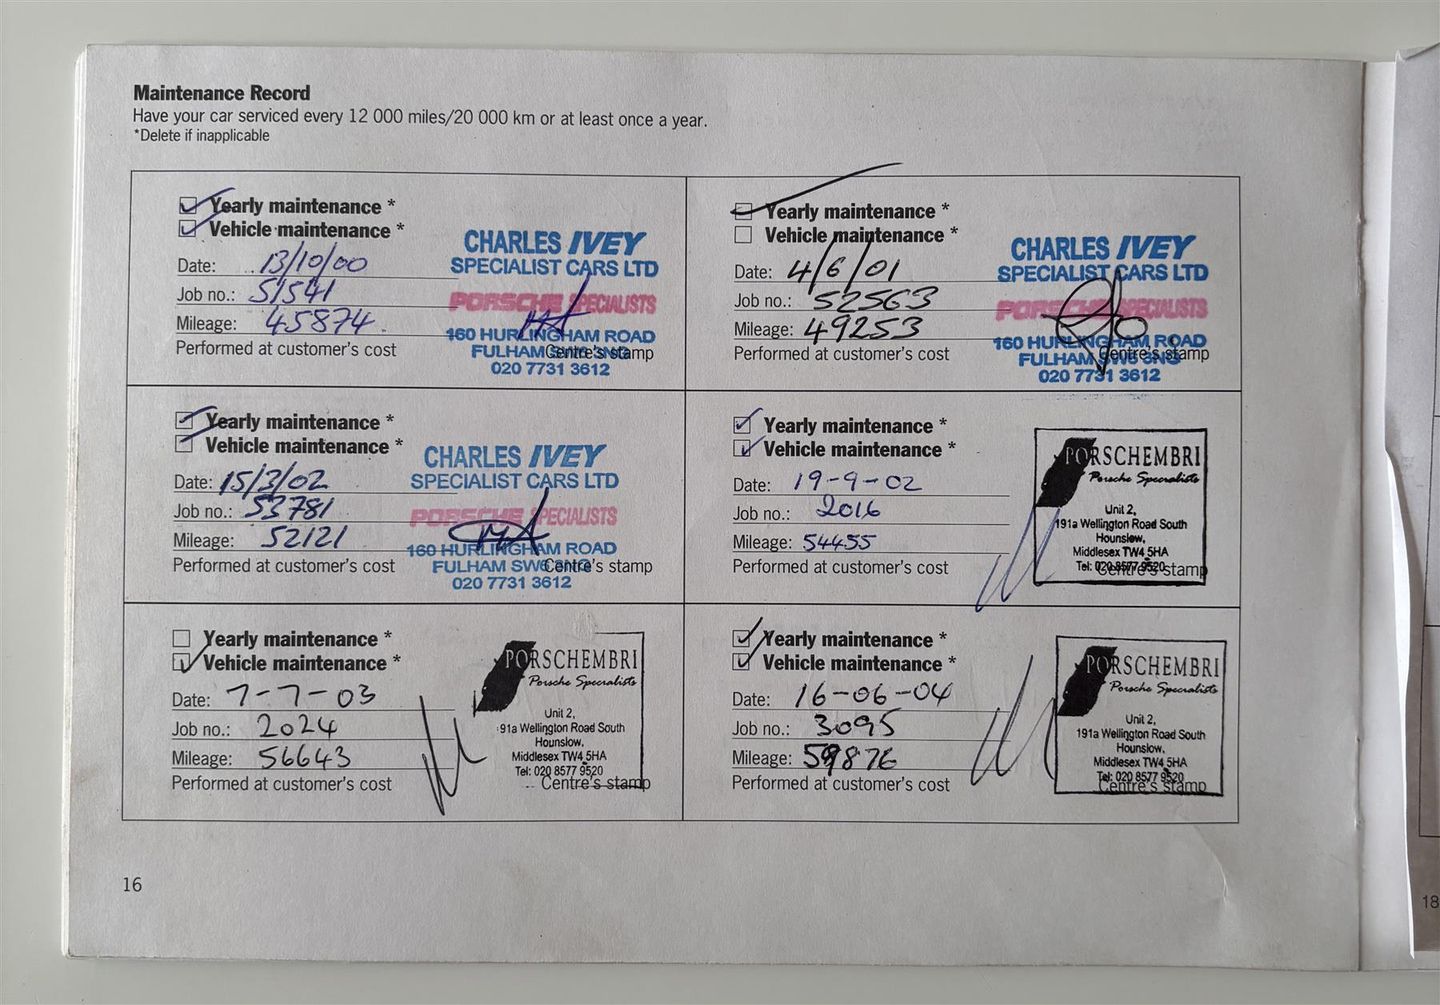 Maintenance Record
Have your car serviced every 12 000 miles/20 000 km or at least once a year.
*Delete if inapplicable
Yearly maintenance *
Vehicle maintenance *
Date: 13/10/00
Job no.: 51541
Mileage: 45874
Performed at customer's cost
CHARLES IVEY
SPECIALIST CARS LTD
PORSCHE SPECIALISTS
160 HURLINGHAM ROAD
FULHAM
Centre's stamp
020 7731 3612
Yearly maintenance *
Vehicle maintenance *
Date: 4/6/01
Job no.: 52563
Mileage: 49253
Performed at customer's cost
CHARLES IVEY
SPECIALIST CARS LTD
PORSCHE SPECIALISTS
160 HURLINGHAM ROAD
FULHAM SW6 3NG
Centre's stamp
020 7731 3612
Yearly maintenance *
Vehicle maintenance *
Date: 15/3/02
Job no.: 53781
Mileage: 52121
Performed at customer's cost
CHARLES IVEY
SPECIALIST CARS LTD
PORSCHE SPECIALISTS
160 HURLINGHAM ROAD
FULHAM SW6
Centre's stamp
020 7731 3612
Yearly maintenance *
Vehicle maintenance *
Date: 19-9-02
Job no.: 2016
Mileage: 54455
Performed at customer's cost
PORSCHEMBRI
Porsche Specialists
Unit 2,
191a Wellington Road South
Hounslow,
Middlesex TW4 5HA
Tel: 020 8577 9520
Centre's stamp
Yearly maintenance *
Vehicle maintenance *
Date: 7-7-03
Job no.: 2024
Mileage: 56643
Performed at customer's cost
PORSCHEMBRI
Porsche Specialists
Unit 2,
91a Wellington Road South
Hounslow,
Middlesex TW4 5HA
Tel: 020 8577 9520
Centre's stamp
Yearly maintenance *
Vehicle maintenance *
Date: 16-06-04
Job no.: 3095
Mileage: 59876
Performed at customer's cost
PORSCHEMBRI
Porsche Specialists
Unit 2,
191a Wellington Road South
Hounslow,
Middlesex TW4 5HA
Tel: 020 8577 9520
Centre's stamp
16
18